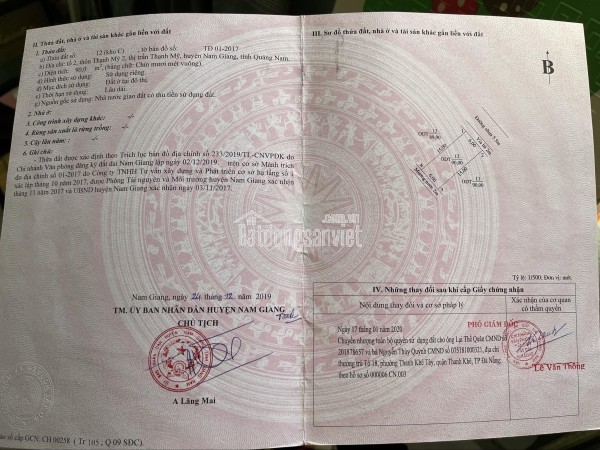 II. Thửa đất, nhà ở và tài sản khác gắn liền với đất
1. Thửa đất:
a) Thửa đất số: 12 (khu C) , tờ bản đồ số: TĐ 01-2017
b) Địa chỉ: tổ 2, thôn Thạnh Mỹ 2, thị trấn Thạnh Mỹ, huyện Nam Giang, tỉnh Quảng Nam.
c) Diện tích: 90,0 m², (bằng chữ: Chín mươi mét vuông).
d) Hình thức sử dụng: Sử dụng riêng.
đ) Mục đích sử dụng: Đất ở tại đô thị.
e) Thời hạn sử dụng: Lâu dài.
g) Nguồn gốc sử dụng: Nhà nước giao đất có thu tiền sử dụng đất.
2. Nhà ở:
3. Công trình xây dựng khác:
4. Rừng sản xuất là rừng trồng:
5. Cây lâu năm:
6. Ghi chú:
- Thửa đất được xác định theo Trích lục bản đồ địa chính số 233/2019/TL-CNVPĐK do
Chi nhánh Văn phòng đăng ký đất đai Nam Giang lập ngày 02/12/2019, trên cơ sở Mảnh trích
đo địa chính số 01-2017 do Công ty TNHH Tư vấn xây dựng và Phát triển cơ sở hạ tầng số 4
lập tháng 10 năm 2017, được Phòng Tài nguyên và Môi trường huyện Nam Giang xác nhận
tháng 11 năm 2017 và UBND huyện Nam Giang xác nhận ngày 03/11/2017.
Nam Giang, ngày 24 tháng 12 năm 2019
TM. ỦY BAN NHÂN DÂN HUYỆN NAM GIANG
CHỦ TỊCH
A Lăng Mai
Vào sổ cấp GCN: CH 00258 ( Tr 105 ; Q 09 SĐC).
III. Sơ đồ thửa đất, nhà ở và tài sản khác gắn liền với đất
B
ODT 13 89,00
ODT 12 90,00
ODT 11 90,00
Tỷ lệ: 1/500, Đơn vị: mét.
IV. Những thay đổi sau khi cấp Giấy chứng nhận
Nội dung thay đổi và cơ sở pháp lý
Xác nhận của cơ quan
có thẩm quyền
Ngày 17 tháng 01 năm 2020.
PHÓ GIÁM ĐỐC
Chuyển nhượng toàn bộ quyền sử dụng đất cho ông Lại Thế Quân CMND số
201878657 và bà Nguyễn Thúy Quỳnh CMND số 035181000321, địa chỉ
thường trú Tổ 18, phường Thanh Khê Tây, quận Thanh Khê, TP Đà Nẵng,
theo hồ sơ số 000006.CN.003
Lê Văn Thông
batdongsanviet
.com.vn